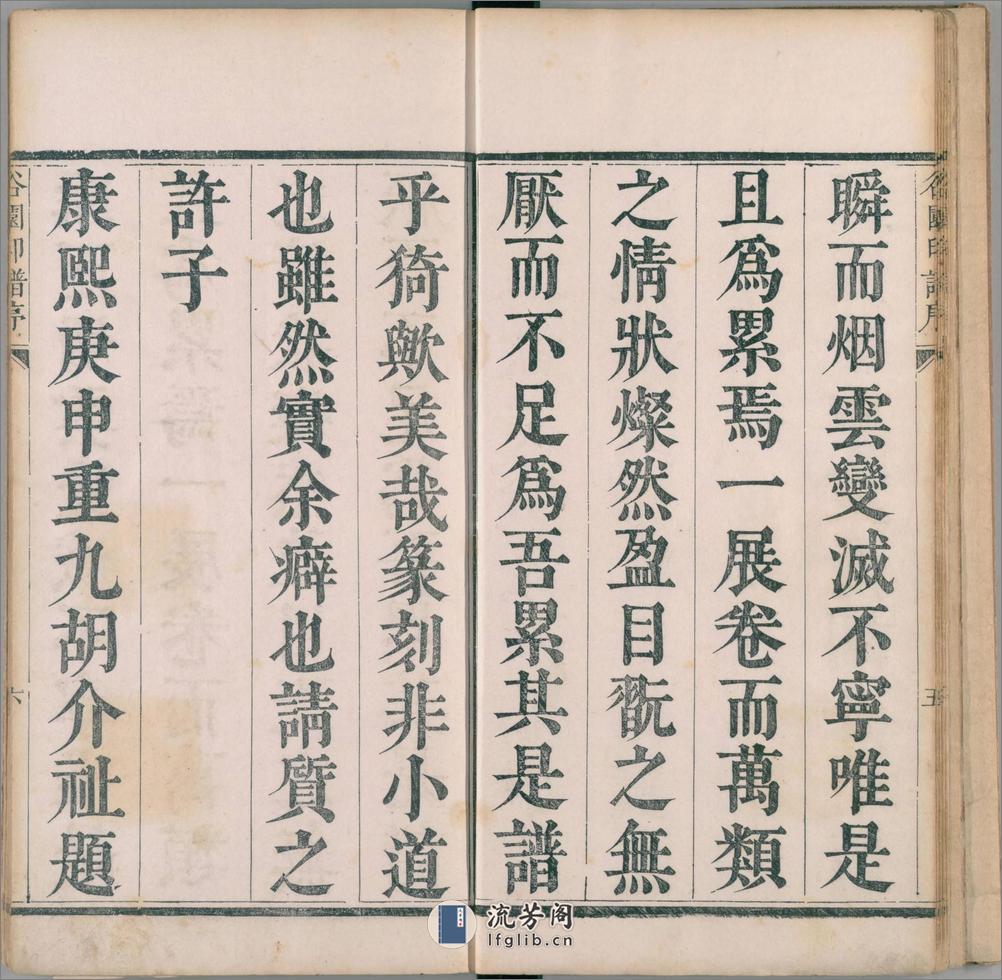 瞬而烟雲變滅不寧唯是
且爲累焉一展卷而萬類
之情狀燦然盈目翫之無
厭而不足爲吾累其是譜
乎猗歟美哉篆刻非小道
也雖然實余癖也請質之
許子
康熙庚申重九胡介祉題
谷園印譜序
五
谷園印譜序
六
流芳阁
lfglib.cn